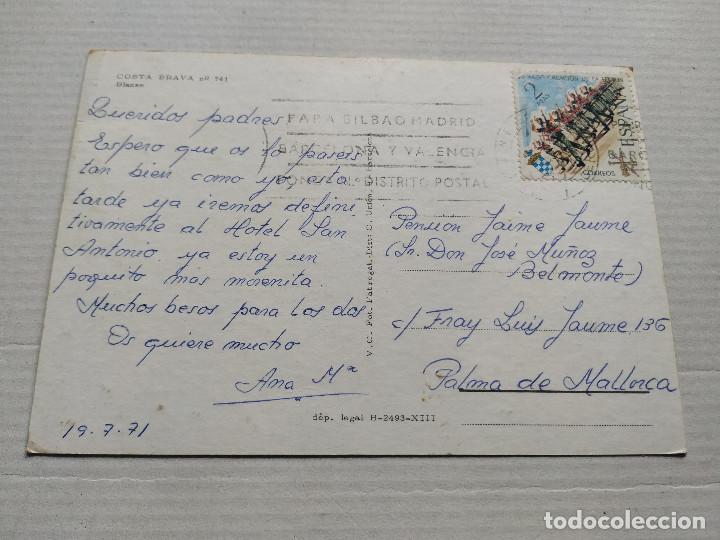 COSTA BRAVA nº 741
Blanes
Queridos padres
Espero que os lo paseis
tan bien como yo, esta
tarde ya iremos defini
tivamente al Hotel San
Antonio, ya estoy un
poquito más morenita.
Muchos besos para los dos
Os quiere mucho
Ana Mª
19-7-71
PARA BILBAO MADRID
BARCELONA Y VALENCIA
PONGA Nº DISTRITO POSTAL
2
PTAS
ESPAÑA
CORREOS
V. C. Fot. Fatregat-Dis: C. Unión,
dép. legal H-2493-XIII
Pension Jaime Jaume
(Sr. Don José Muñoz
Belmonte)
c/ Fray Luis Jaume, 136
Palma de Mallorca
todocoleccion